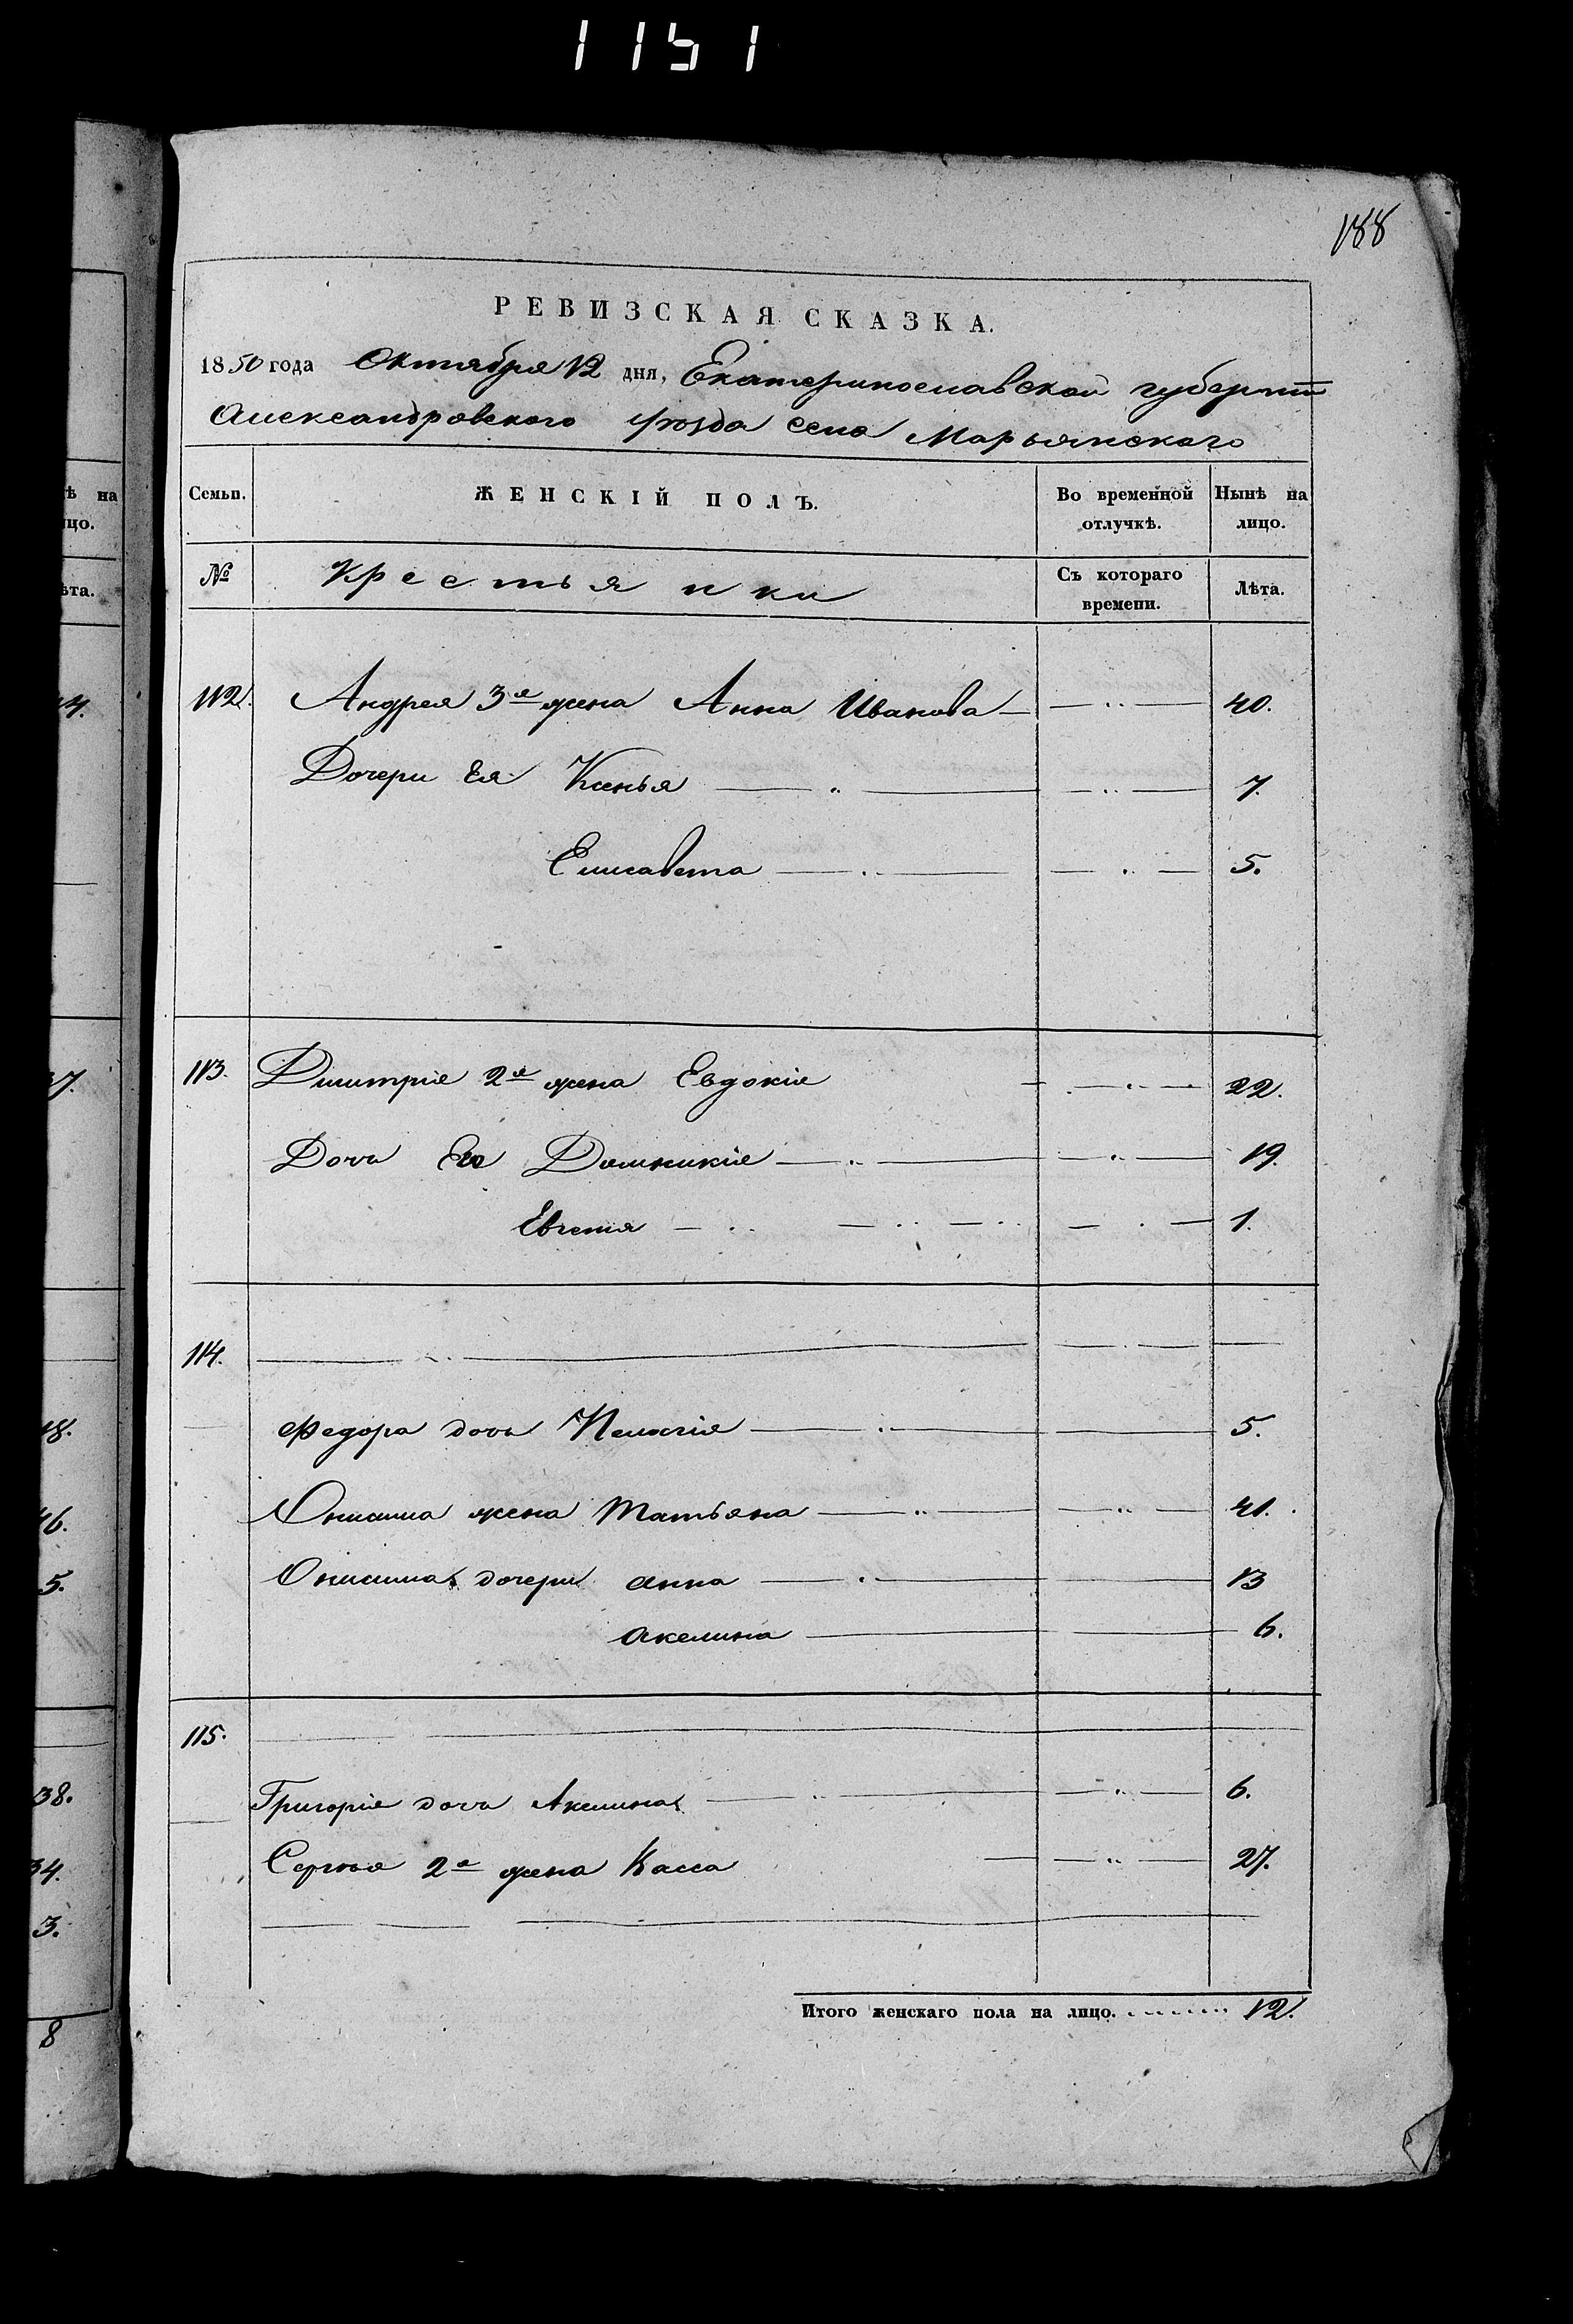 1151
188
РЕВИЗСКАЯ СКАЗКА.
1850 года Октября 12 дня, Екатеринославской губернии
Александровского уѣзда села Марьянского
Семьи. ЖЕНСКІЙ ПОЛЪ. Во временной отлучкѣ. Нынѣ на лицо.
№ Крестьянки Съ котораго времени. Лѣта.
112. Андрея 3я жена Анна Иванова 40.
Дочери Ея Ксенья 7.
Елисавета 5.
113. Димитрія 2я жена Евдокія 22.
Дочь Его Домникія 19.
Евгенія 1.
114.
Федора дочь Пелагія 5.
Онисима жена Татьяна 41.
Онисима дочери Анна 13
Акелина 6.
115.
Григорія дочь Акелина 6.
Сергѣя 2я жена Васса 27.
Итого женскаго пола на лицо. 12.
ѣ на
ицо.
ѣта.
4.
37.
18.
46.
5.
38.
34.
3.
8